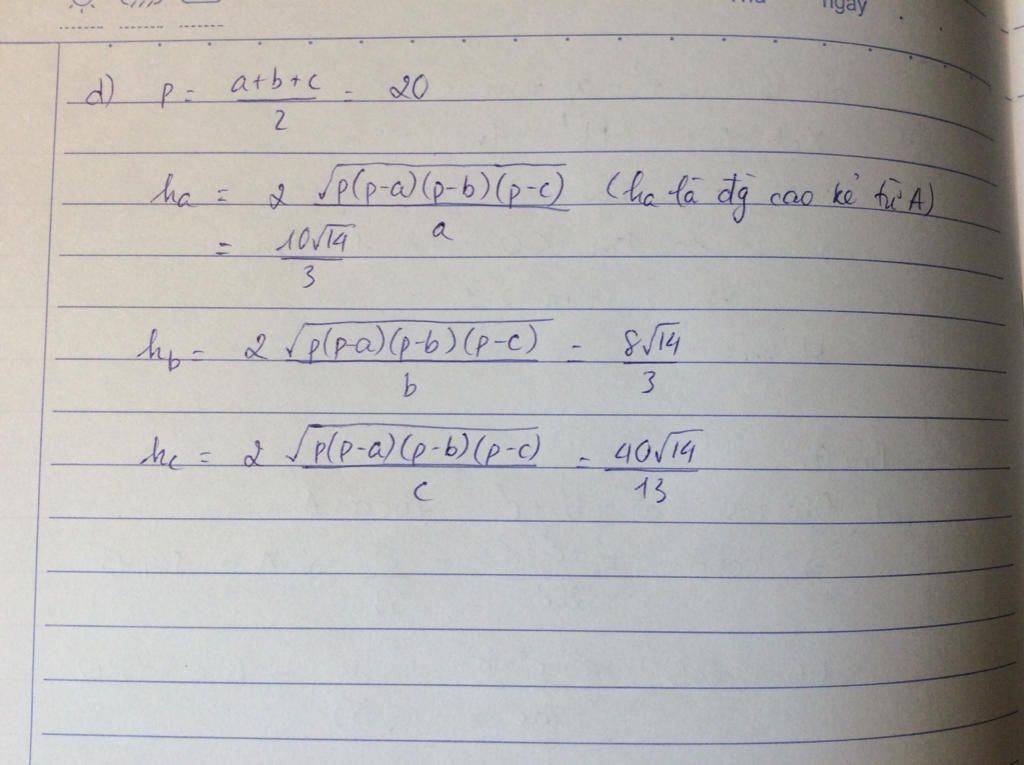 ngày
d) p = \frac{a+b+c}{2} = 20
ha = 2 \frac{\sqrt{p(p-a)(p-b)(p-c)}}{a} (ha là đg cao kẻ từ A)
= \frac{10\sqrt{14}}{3}
h_b = 2 \frac{\sqrt{p(p-a)(p-b)(p-c)}}{b} = \frac{8\sqrt{14}}{3}
h_c = 2 \frac{\sqrt{p(p-a)(p-b)(p-c)}}{c} = \frac{40\sqrt{14}}{13}